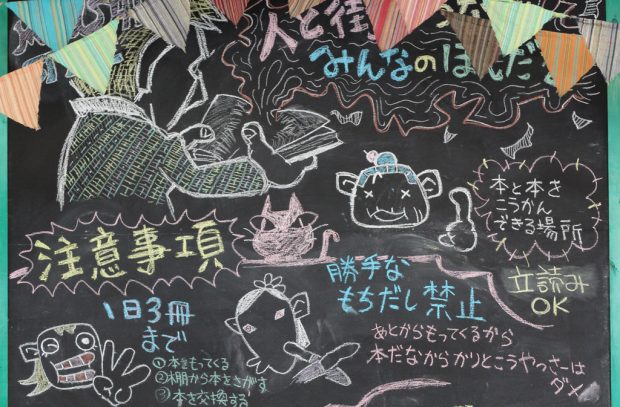 人と街
みんなのほんだ
本と本を
こうかん
できる場所
注意事項
立読み
OK
勝手な
もちだし禁止
あとからもってくるから
本だなからかりとこうやっさーは
ダメ
1日3冊
まで
①本をもってくる
②棚から本をさがす
③本を交換する